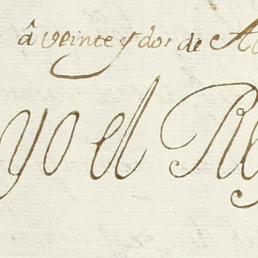 â veinte y dos de A
yo el Re